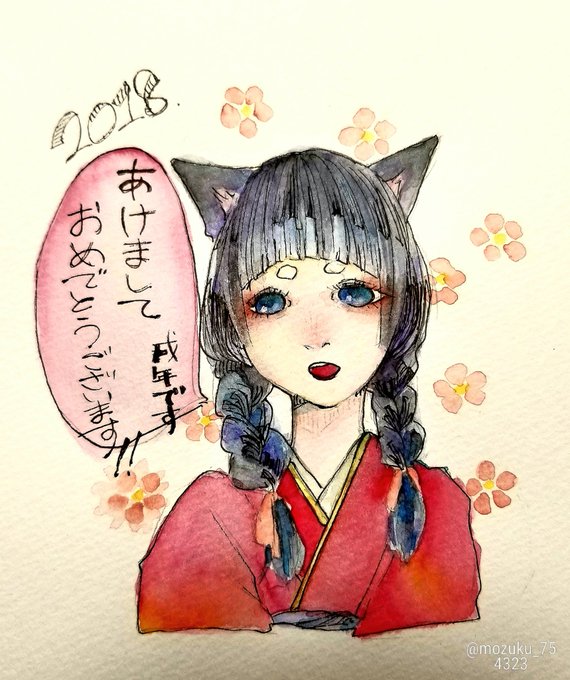 2018.
あけまして
おめでとうございます!!
戌年です
@mozuku_75
4323